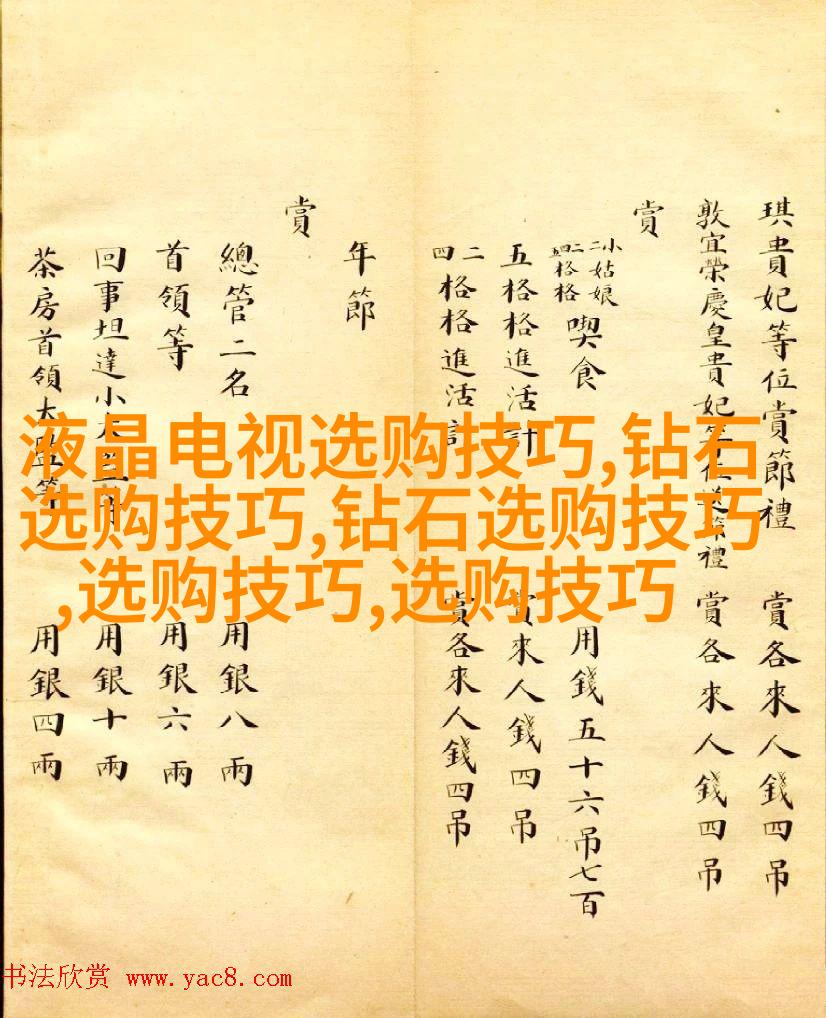 琪貴妃等位賞節禮 賞各來人錢四吊
敦宜榮慶皇貴妃等位送節禮 賞各來人錢四吊
賞
小二姑娘二四格格格格喫食 用錢五十六吊七百
五格格進活計 賞來人錢四吊
二四格格進活計 賞各來人錢四吊
年節
賞
總管二名 用銀八兩
首領等 用銀六兩
回事坦達小太監等 用銀十兩
茶房首領太監等 用銀四兩
液晶电视选购技巧,钻石
选购技巧,钻石选购技巧
,选购技巧,选购技巧
书法欣赏 www.yac8.com